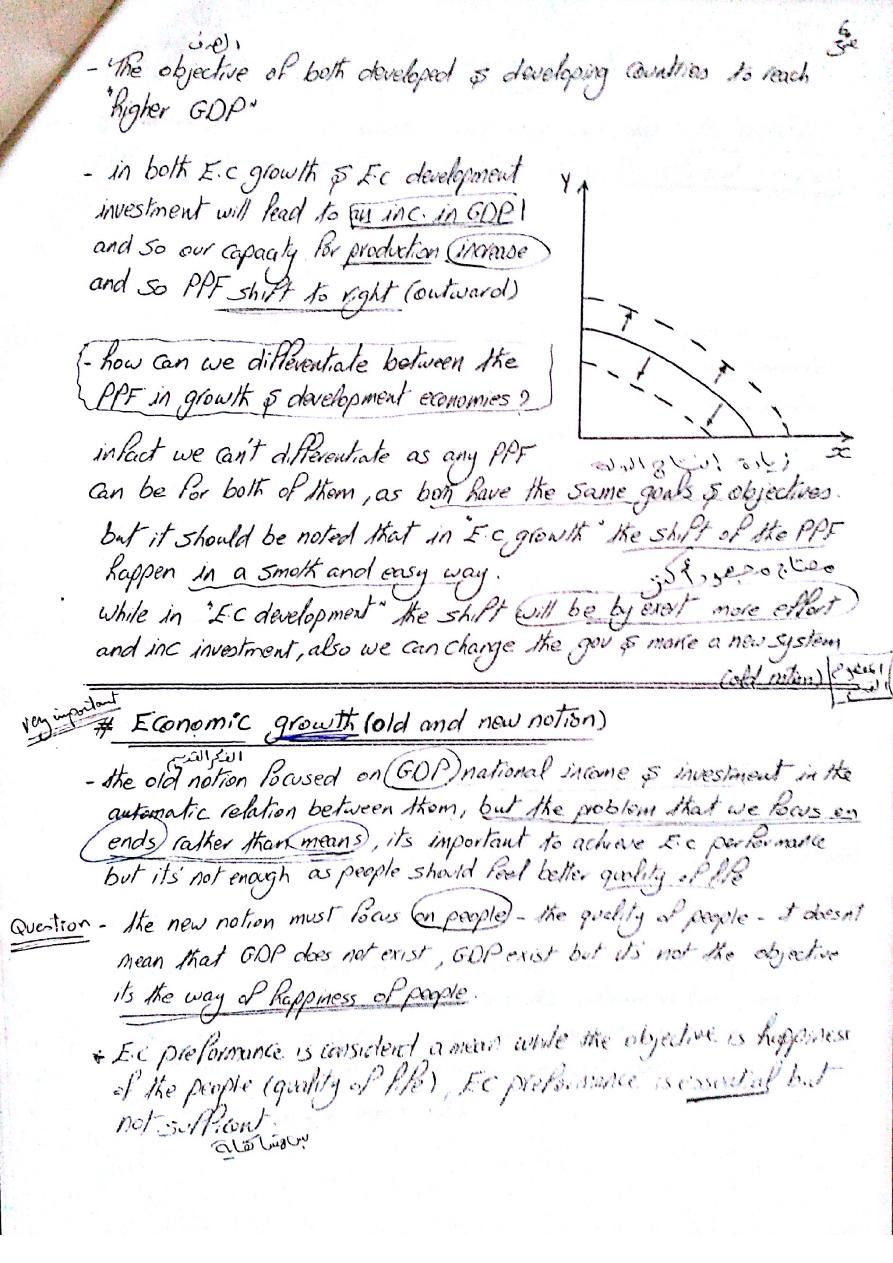 6
الهدف
- The objective of both developed & developing countries to reach
"higher GDP"
- in both E.c growth & Ec development
investment will lead to an inc. in GDP
and so our capacity for production increase
and so PPF shift to right (outward)
Y
x
- how can we differentiate between the
PPF in growth & development economies ?
زيادة إنتاج الدولة
infact we can't differentiate as any PPF
can be for both of them, as both have the same goals & objectives.
but it should be noted that in "E.c growth" the shift of the PPF
happen in a smoth and easy way.
محتاج مجهود أكبر
while in "E.C development" the shift will be by exert more effort
and inc investment, also we can change the gov & make a new system
(old notion)
المفهوم
القديم
very important
# Economic growth (old and new notion)
الفكر القديم
- the old notion focused on GDP national income & investment in the
automatic relation between them, but the problem that we focus on
ends rather than means, its important to achieve E.c performance
but it's not enough as people should feel better quality of life
Question - the new notion must focus on people - the quality of people - it doesn't
mean that GDP does not exist, GDP exist but it's not the objective
its the way of happiness of people.
* E.c preformance is considerd a mean while the objective is happiness
of the people (quality of life), EC preformance is essential but
not sufficont.
بس مش كفاية